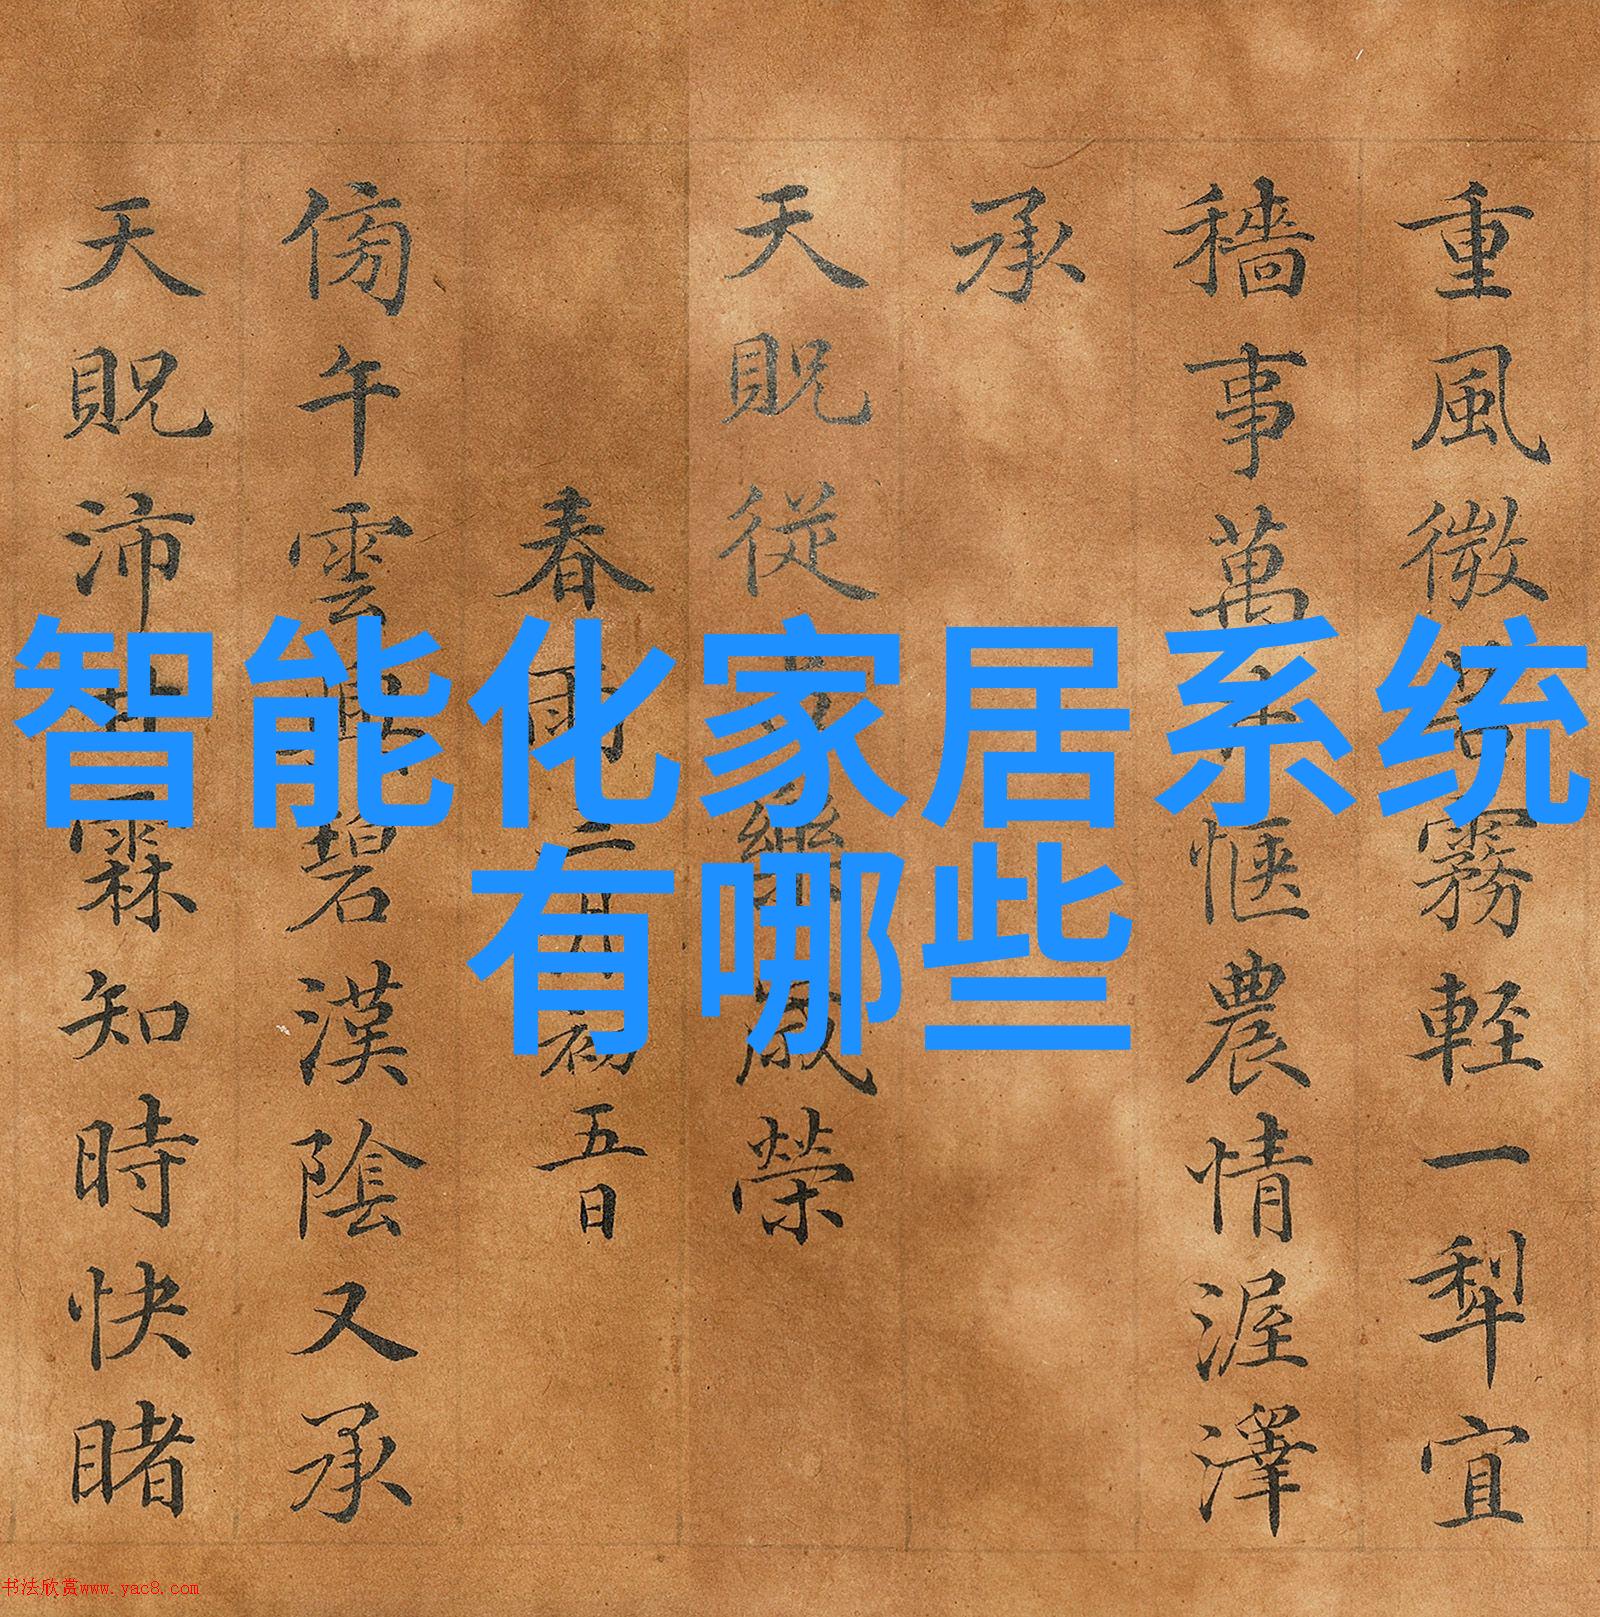 智能化家居系统
有哪些
重風微霧輕一犁宜
穡事萬愜農情渥澤
承
天貺從樂歲榮
春雨月初五日
傍午雲碧漢陰又承
天貺沛甘霖知時快睹
书法欣赏www.yac8.com